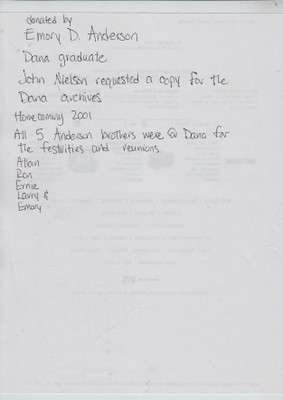 donated by
Emory D. Anderson
Dana graduate
John Nielson requested a copy for the
Dana archives
Homecoming 2001
All 5 Anderson brothers were @ Dana for
the festivities and reunions
Allan
Ron
Ernie
Larry &
Emory